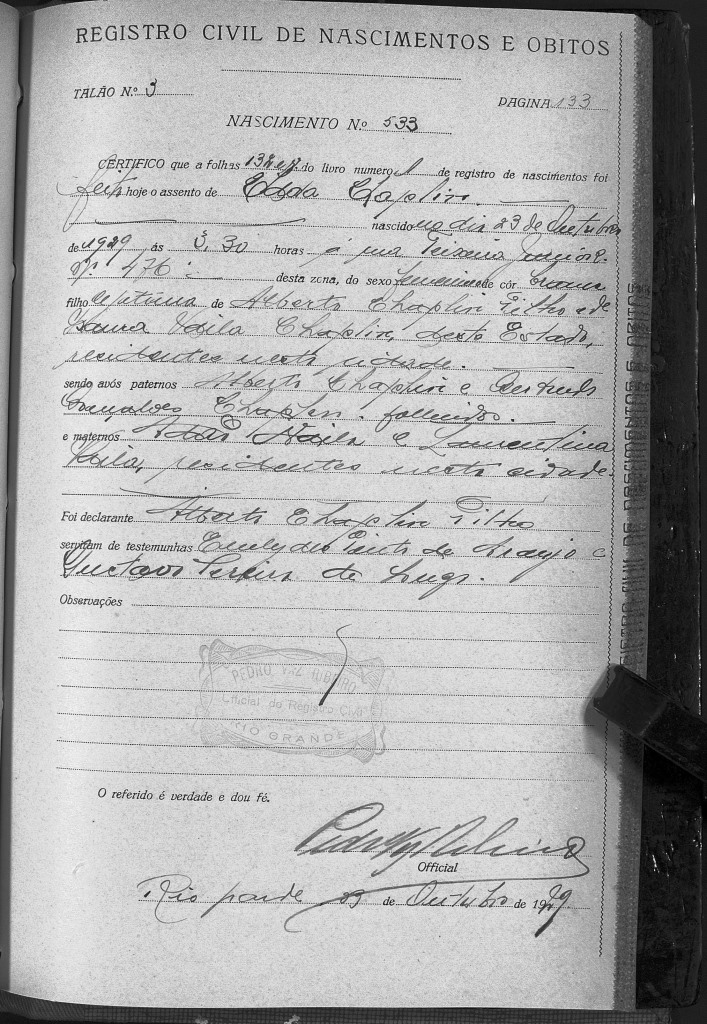 REGISTRO CIVIL DE NASCIMENTOS E OBITOS
TALÃO N.º 3
PAGINA 133
NASCIMENTO N.º 533
CERTIFICO que a folhas 132 e v. do livro numero 1 de registro de nascimentos foi
feito hoje o assento de Edda Chaplin.
nascido no dia 23 de Outubro
de 1929 ás 3,30 horas á rua Teixeira Junior
nº 476 desta zona, do sexo femenino de côr branca
filho legitima de Alberto Chaplin Filho e de
Laura Chaplin, deste Estado,
residentes nesta cidade.
sendo avós paternos Alberto Chaplin e Gertrudes
Gonçalves Chaplin. fallecidos.
e maternos Adão e Laurentina
residentes nesta cidade.
Foi declarante Alberto Chaplin Filho
serviram de testemunhas Euclydes Pinto de Araujo e
Gustavo Pereira de
Observações
PEDRO VAZ RIBEIRO
Official do Registro Civil
RIO GRANDE
O referido é verdade e dou fé.
Pedro Vaz Ribeiro
Official
Rio Grande 23 de Outubro de 1929.